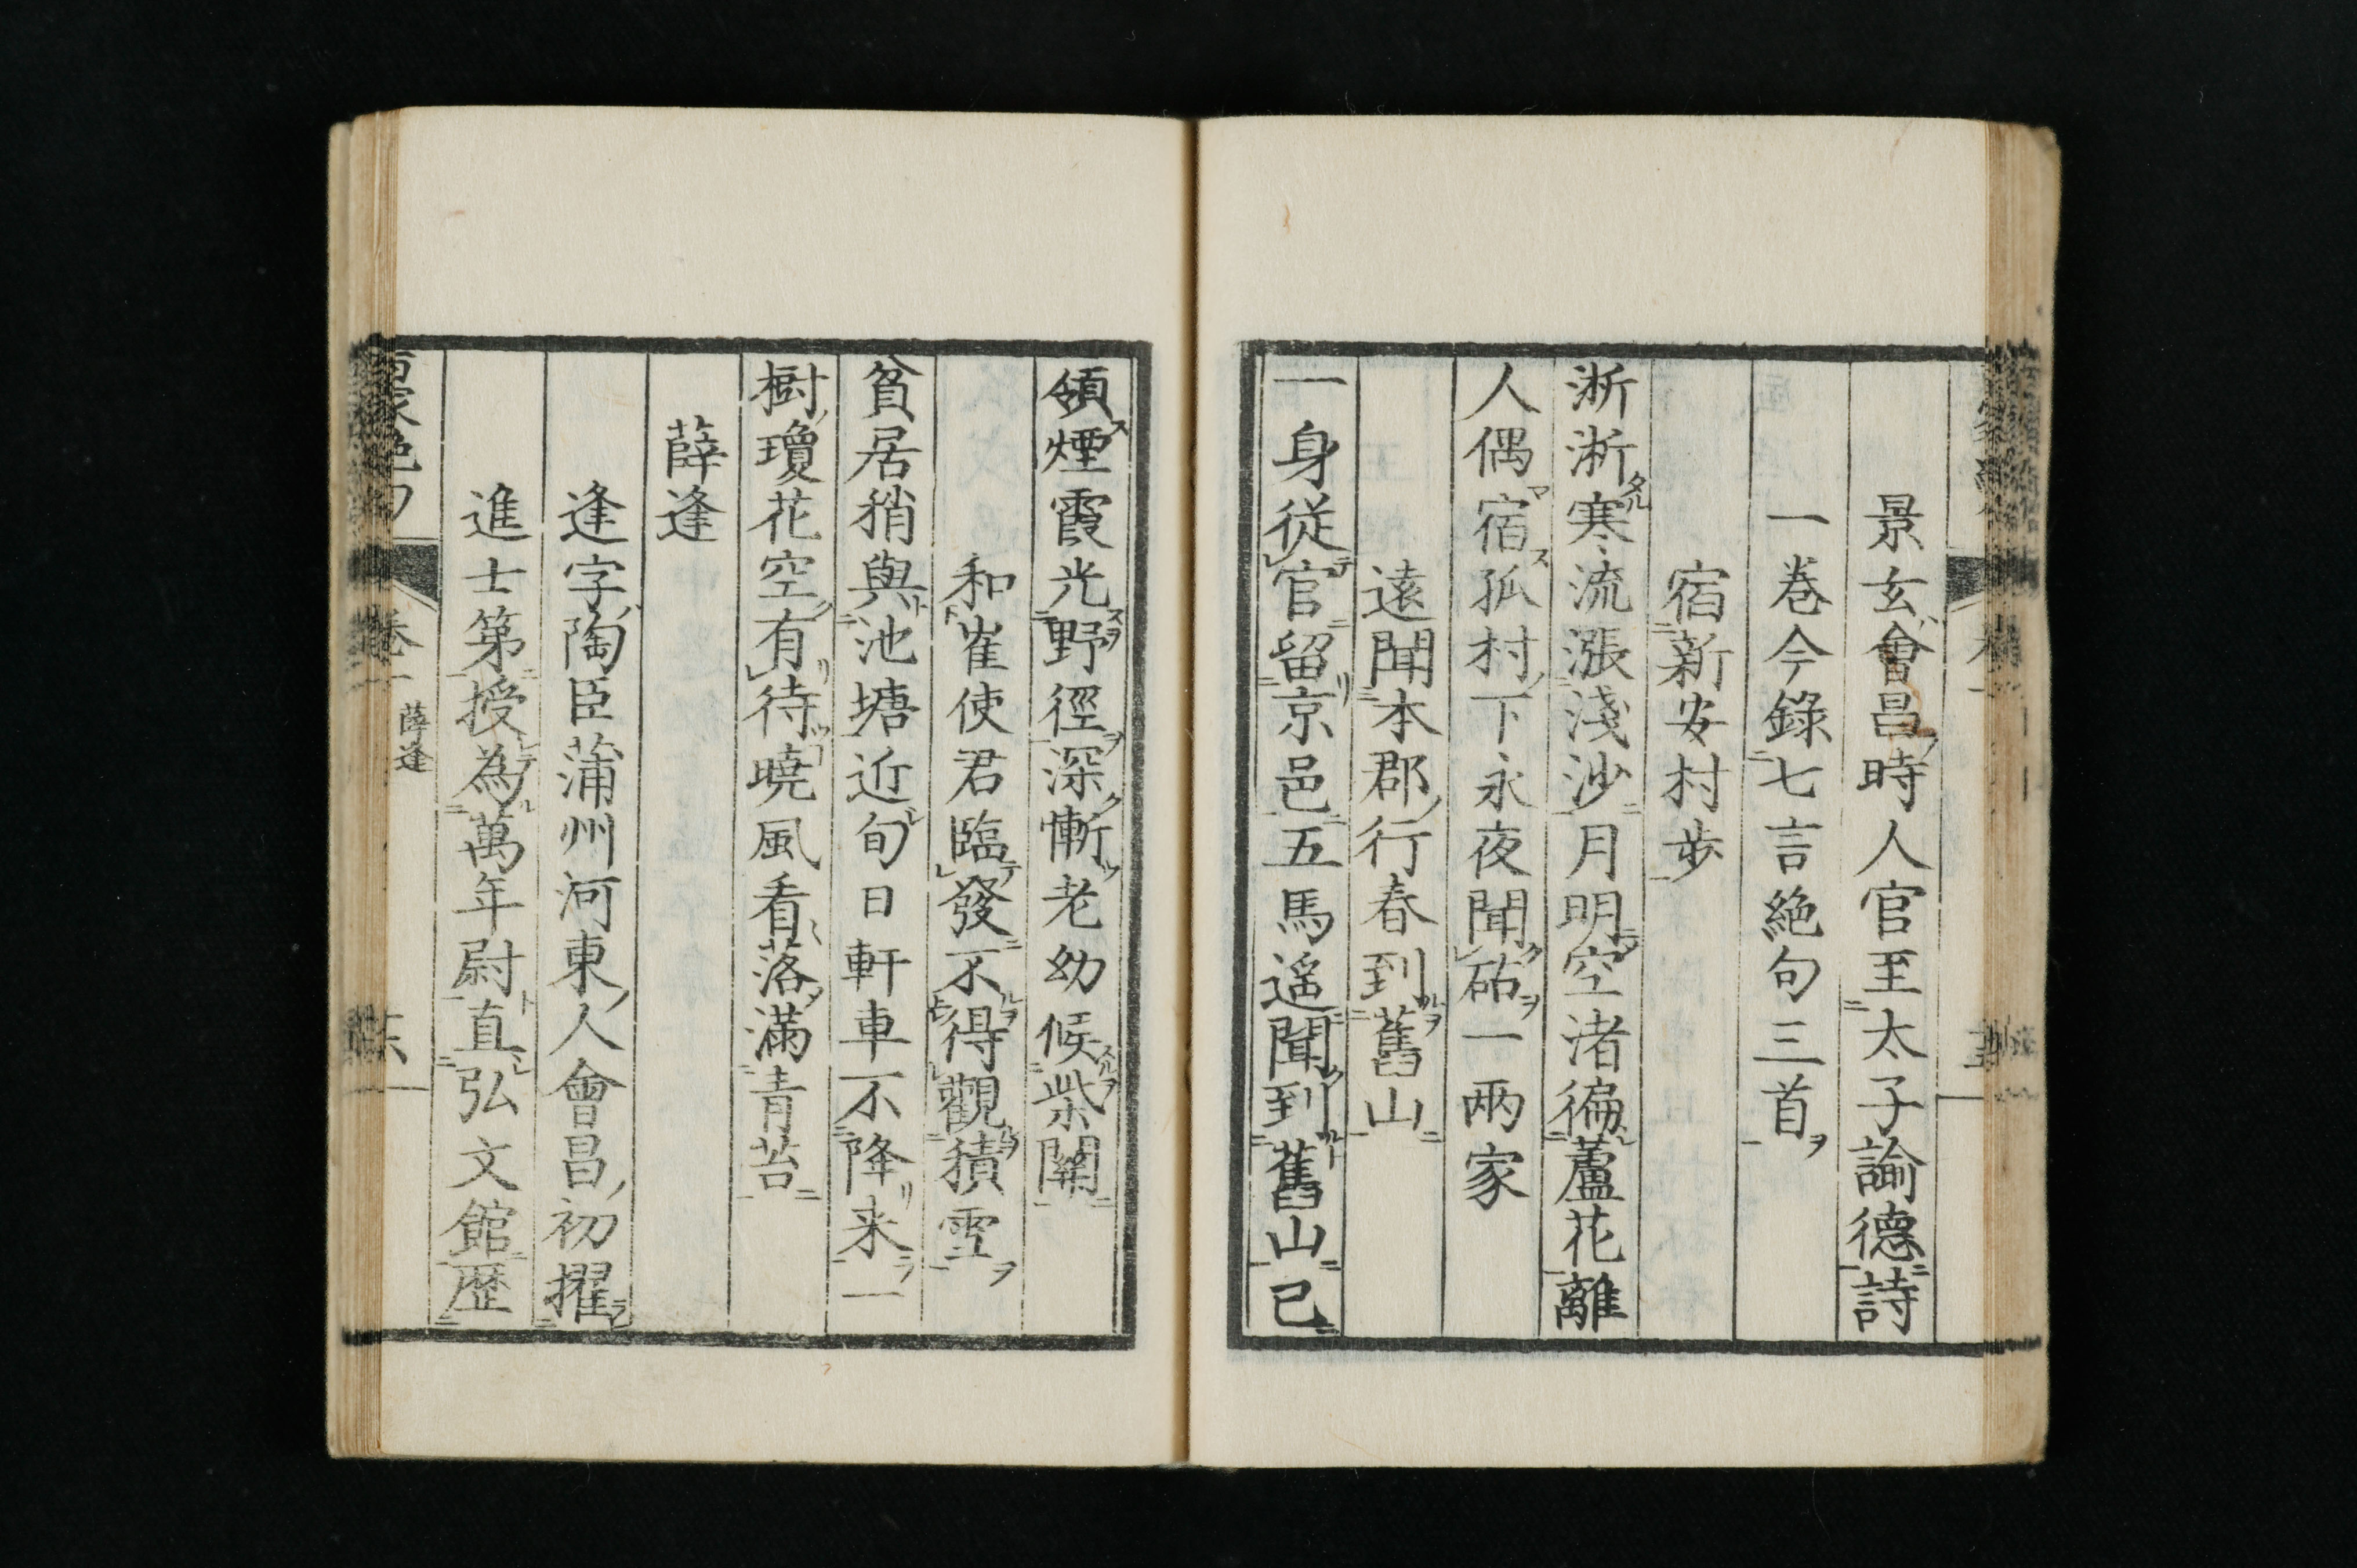 景玄會昌時人官至太子諭德詩
一卷今錄七言絶句三首
宿新安村步
淅淅寒流漲淺沙月明空渚徧蘆花離
人偶宿孤村下永夜聞砧一兩家
遠聞本郡行春到舊山
一身従官留京邑五馬遥聞到舊山已
領煙霞光野徑深慚老幼候柴關
和崔使君臨發不得觀積雪
貧居稍與池塘近旬日軒車不降来一
樹瓊花空有待曉風看落滿青苔
薛逢
逢字陶臣蒲州河東人會昌初擢
進士第授為萬年尉直弘文館歴
卷一
薛逢